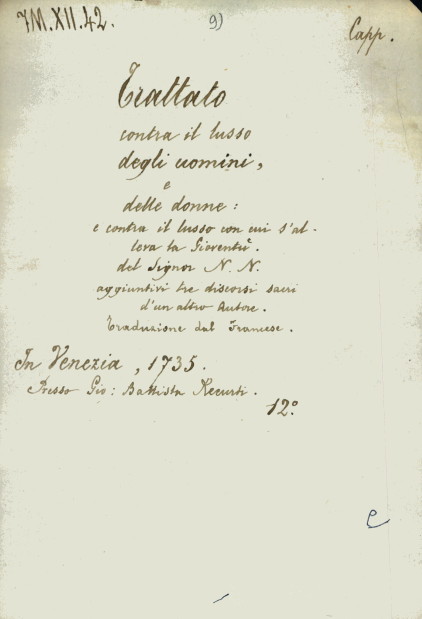 7M.XII.42.
9)
Capp.
Trattato
contra il lusso
degli uomini,
e
delle donne:
e contra il lusso con cui s'al-
leva la Gioventù.
del Signor N. N.
aggiuntivi tre discorsi sacri
d'un altro Autore.
Traduzione dal Francese.
In Venezia, 1735.
Presso Gio: Battista Recurti.
12.º